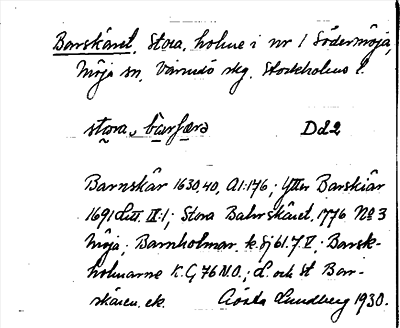 Barskäret, Stora, holme i nr 1 Södermöja,
Möja sn, Värmdö skg. Stockholms l.
stora, barfæra Dd2
Barnskär 1630, 40, A1:176; Ytter Barskiär
1691 Litt IX:1; Stora Bahrskäret, 1776 No 3
Möja; Barnholmar k. Sj 61. 7. V; Barsk-
holmarne K. G, 76 N.O.; L. och St Bar-
skären, ek. Gösta Lundberg 1930.